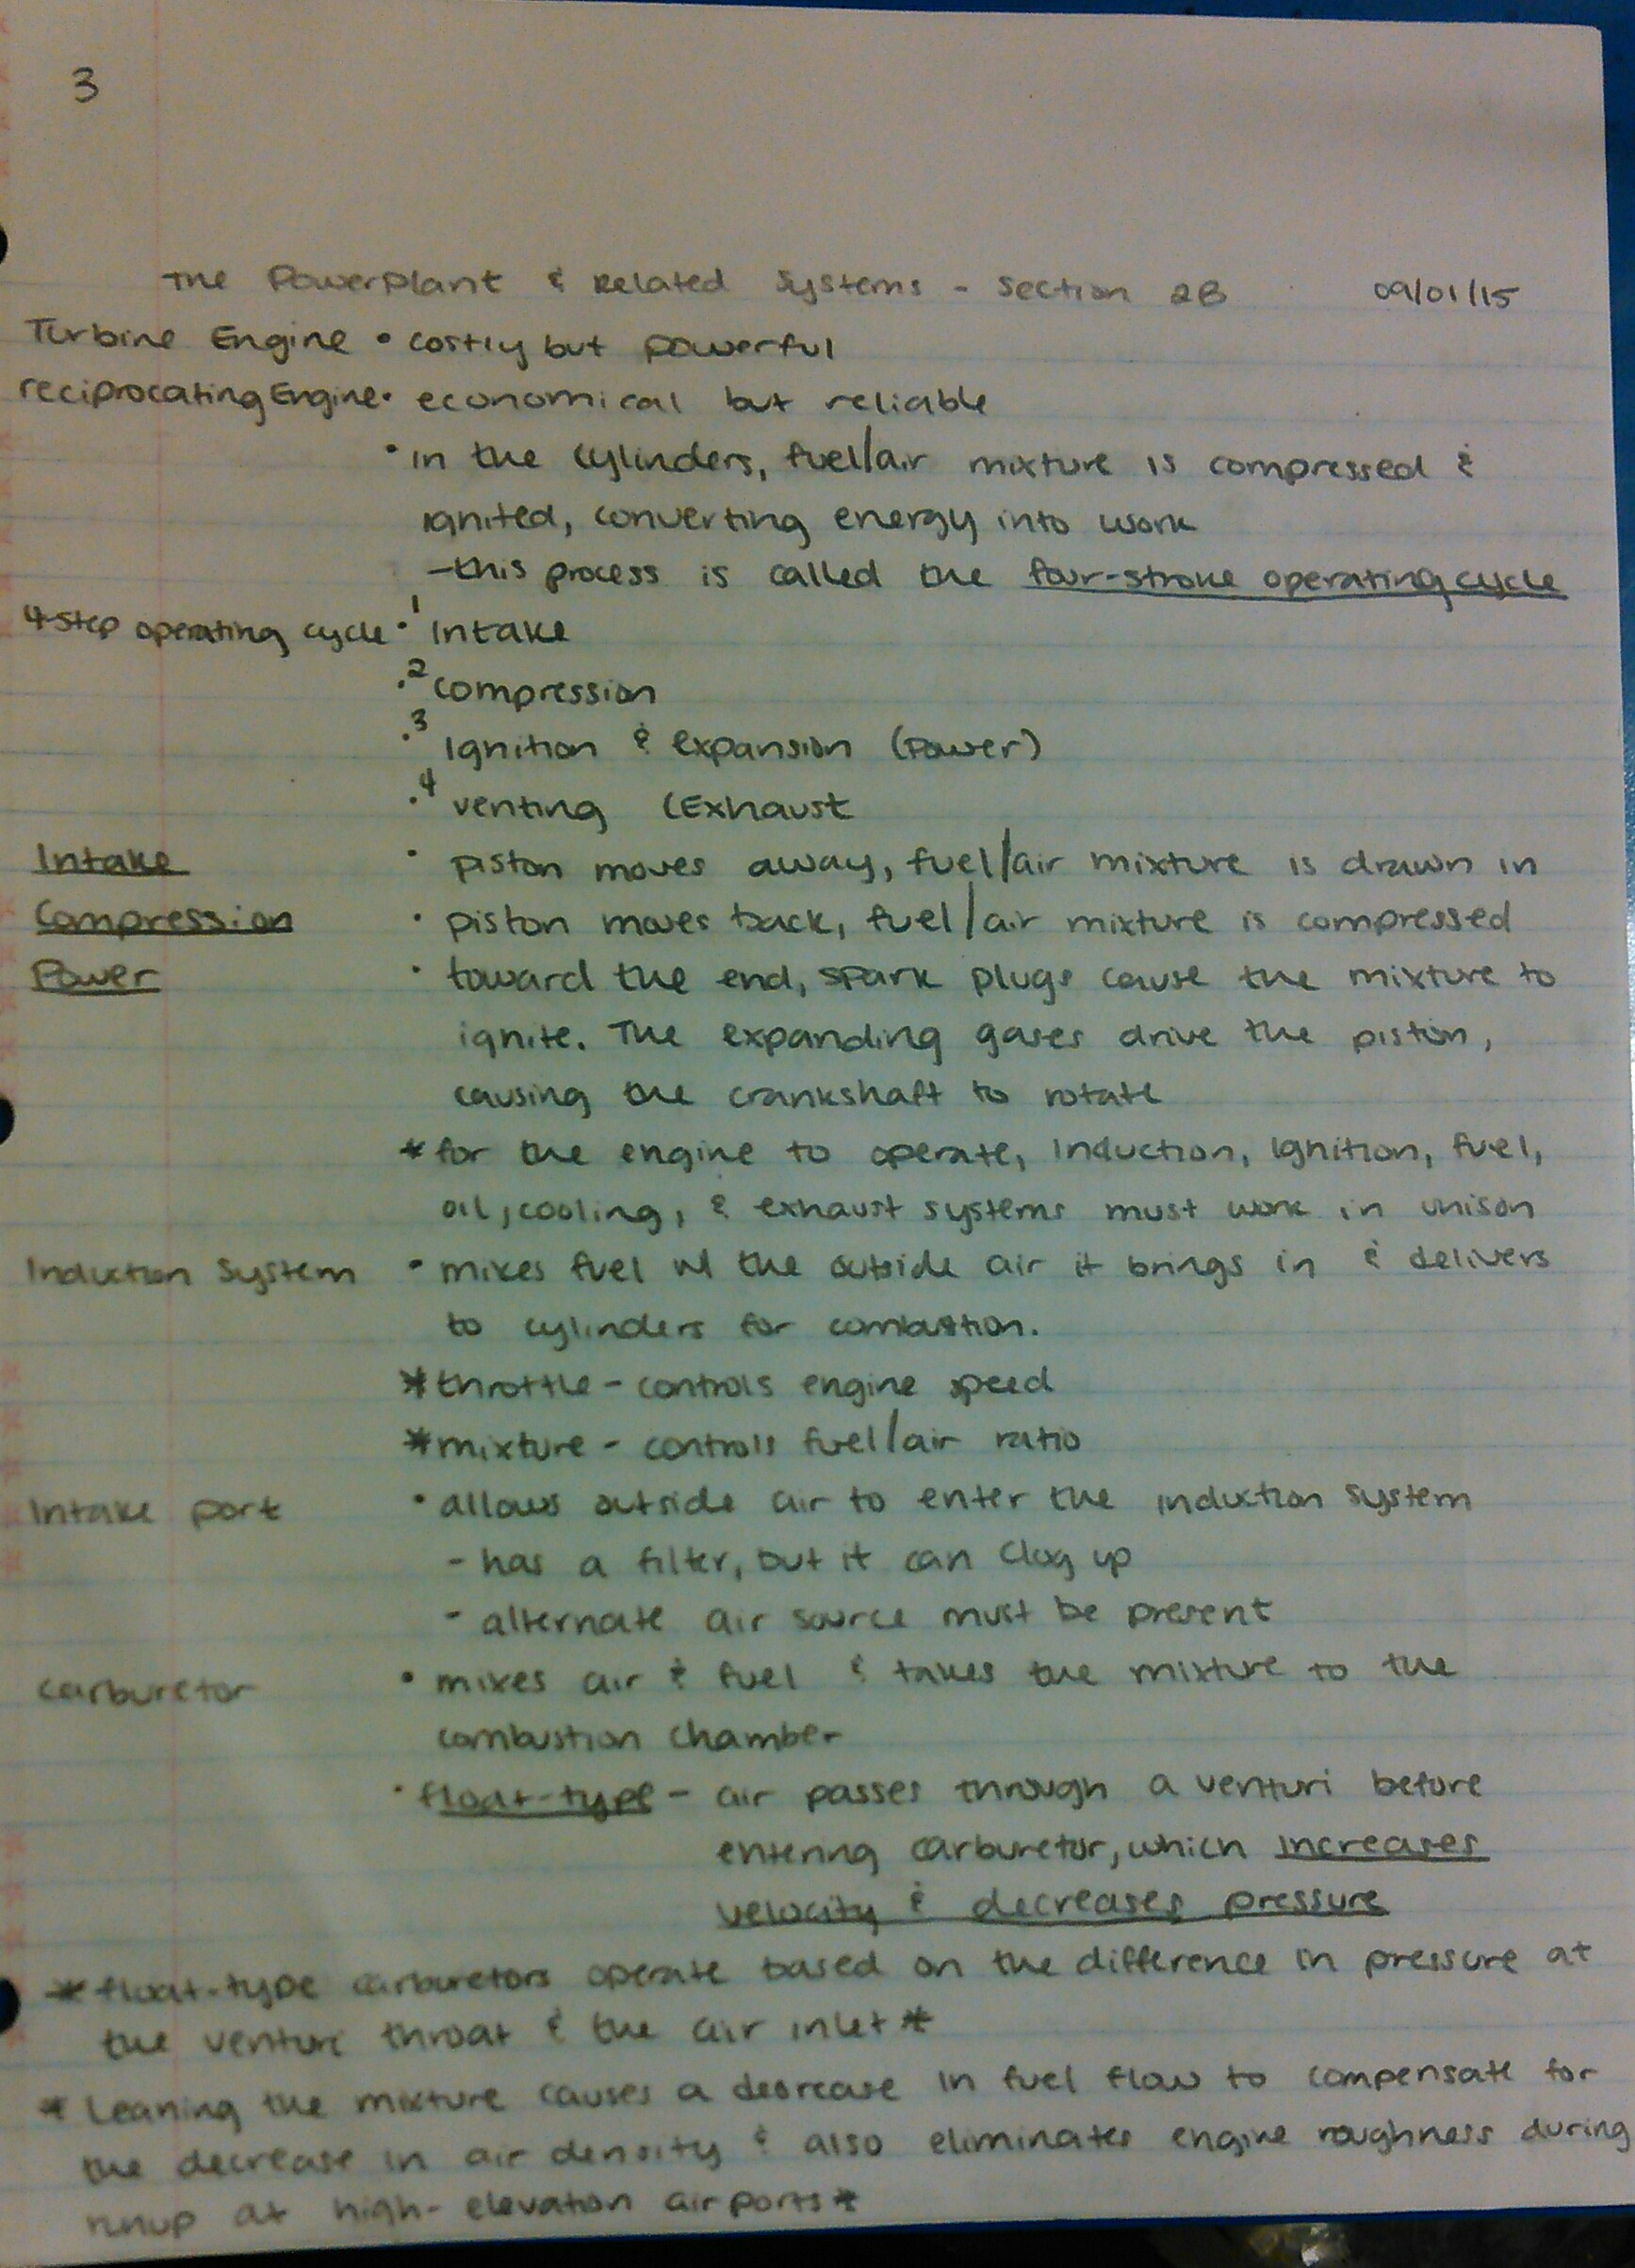 3
The PowerPlant & Related Systems - Section 2B 09/01/15
Turbine Engine • costly but powerful
reciprocating Engine • economical but reliable
• in the cylinders, fuel/air mixture is compressed &
ignited, converting energy into work
- this process is called the four-stroke operating cycle
4-step operating cycle • 1 Intake
• 2 compression
• 3 Ignition & expansion (Power)
• 4 venting (Exhaust
Intake • piston moves away, fuel/air mixture is drawn in
Compression • piston moves back, fuel/air mixture is compressed
Power • toward the end, spark plugs cause the mixture to
ignite. The expanding gases drive the piston,
causing the crankshaft to rotate
* for the engine to operate, Induction, Ignition, fuel,
oil, cooling, & exhaust systems must work in unison
Induction System • mixes fuel w/ the outside air it brings in & delivers
to cylinders for combustion.
* throttle - controls engine speed
* mixture - controls fuel/air ratio
Intake port • allows outside air to enter the induction system
- has a filter, but it can clog up
- alternate air source must be present
carburetor • mixes air & fuel & takes the mixture to the
combustion chamber
• float-type - air passes through a venturi before
entering carburetor, which increases
velocity & decreases pressure
* float-type carburetors operate based on the difference in pressure at
the venturi throat & the air inlet *
* Leaning the mixture causes a decrease in fuel flow to compensate for
the decrease in air density & also eliminates engine roughness during
runup at high-elevation airports *